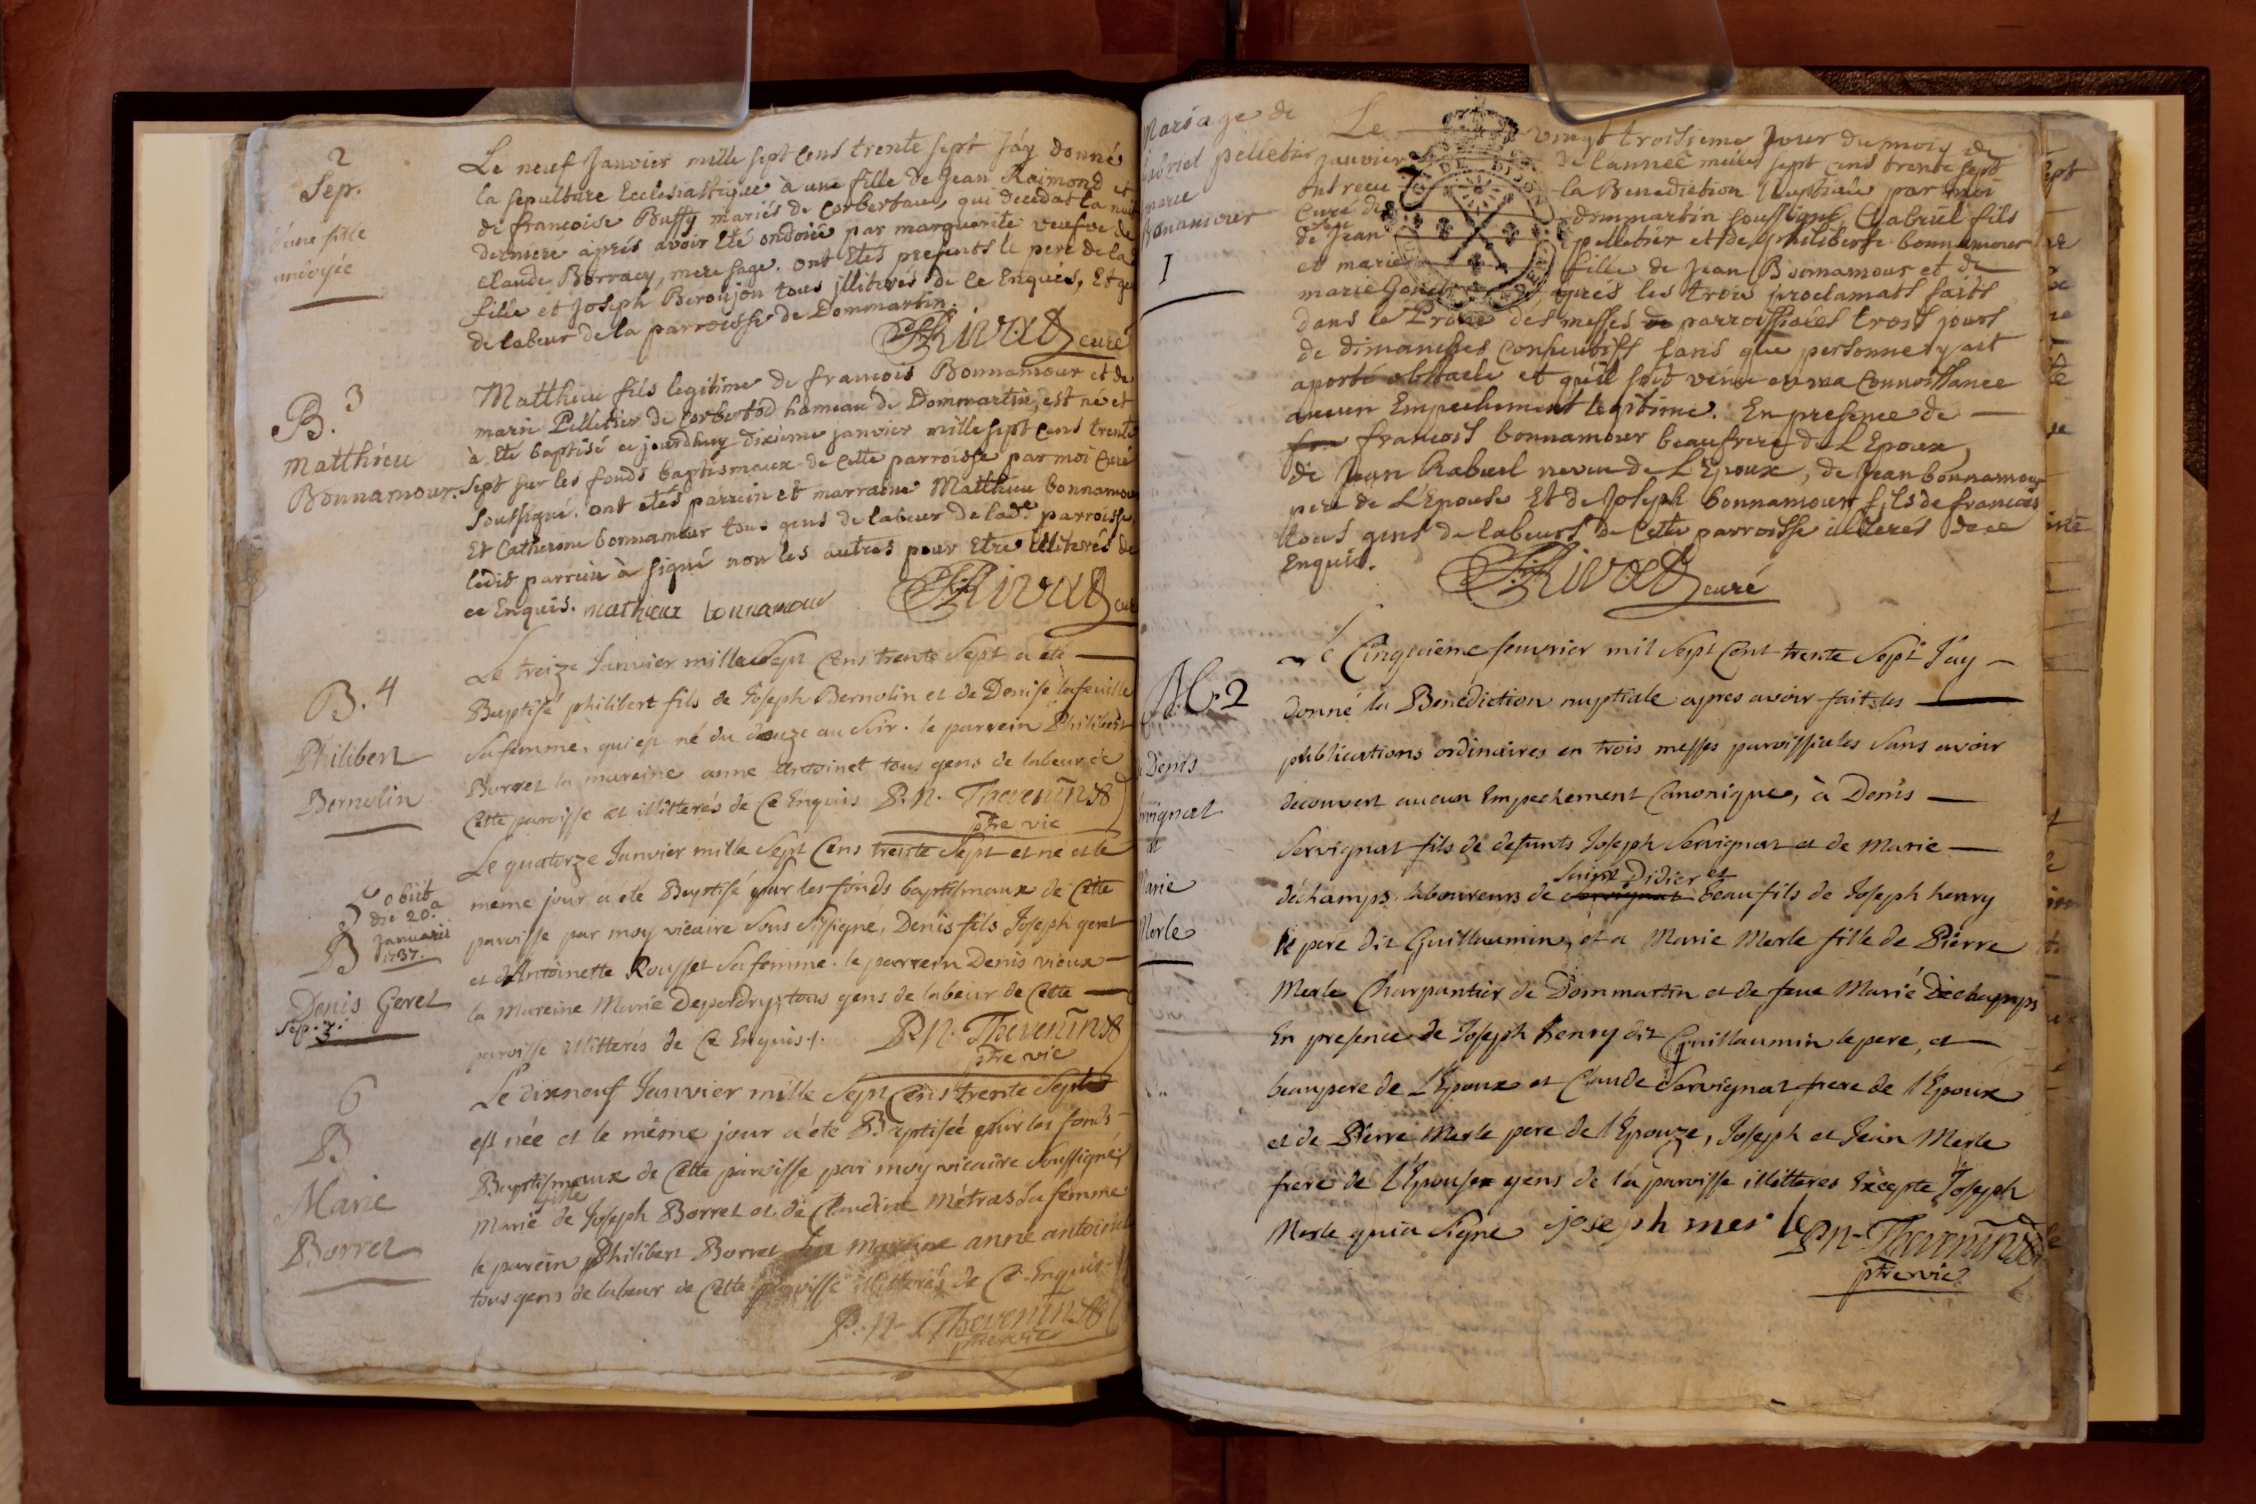 2
Sep.
d'une fille
ondoyée
Le neuf Janvier mille sept cens trente sept J'ay donné
la sepulture Ecclesiastique à une fille de Jean Raimond et
de francoise Buffy mariés de Corbertau, qui deceda la nuit
derniere après avoir été ondoiée par marguerite veufve de
Claude Borracy, mere sage. ont étés presents le pere de la
fille et Joseph Beroujon tous illiterés de ce Enquis, Et gens
de labeur de la parroisse de Dommartin.
Rivat curé
B. 3
Matthieu
Bonnamour.
Matthieu fils legitime de francois Bonnamour et de
marie Pelletier de Corbertod hameau de Dommartin, est né et
à été baptisé ce jourdhuy dixieme janvier mille sept cens trente
sept sur les fonds baptismaux de cette parroisse par moi Curé
soussigné. ont étés parrein et marraine Matthieu bonnamour
Et Catherine bonnamour tous gens de labeur de lade parroisse
ledit parrein à signé non les autres pour Etre illiterés de
ce Enquis. mathieux bonnamour Rivat curé
B. 4
Philibert
Bernolin
Le treize Janvier mille sept cens trente sept a été
Baptisé philibert fils de Joseph Bernolin et de Denise lafeuille
sa femme, qui est né du douze au soir. le parrein Philibert
Borret la mareine anne Antoinet tous gens de labeur de
Cette paroisse et illitterés de Ce Enquis P. n. Thevenin
ptre vic
obiit
die 20.a
Januarii
1737.
5
B
Denis Geret
Sep. 3.
Le quatorze Janvier mille sept Cens trente sept et né et le
meme jour a été Baptisé sur les fonds baptismaux de Cette
paroisse par moy vicaire sous signé, Denis fils Joseph geret
et d'Antoinette Rousset sa femme. le parrein Denis vieux
la Mareine Marie Depardry, tous gens de labeur de Cette
paroisse illitterés de Ce Enquis. P. n. Thevenin
ptre vic
6
B
Marie
Borret
Le dixneuf Janvier mille sept Cens trente sept
est née et le même jour a été Baptisée sur les fonds
Baptismaux de Cette paroisse par moy vicaire soussigné,
fille
Marie de Joseph Borret et de Claudine Métras sa femme
le parein Philibert Borret la mareine anne antoinet
tous gens de labeur de Cette paroisse illitterés de Ce Enquis
P. n. Thevenin
ptre vic
Mariage de
pelletier
marie
Bonamour
I
Le vingt troisieme Jour du mois de
janvier de l'année mille sept cens trente sept
ont recu la Benediction Nuptiale par moi
Curé de dommartin soussigné, Gabriel fils
de Jean pelletier et de philiberte bonnamour
et marie fille de Jean Bonnamour et de
marie après les trois proclamats faits
dans le Prone des messes parroissiales trois jours
de dimanches consecutifs sans que personne y ait
aporté obstacle et qu'il soit venu en ma Connoissance
aucun Empechement legitime. En presence de
francois bonnamour beaufrere de L'Epoux,
de Jean Rabuel neveu de L'Epoux, de Jean bonnamour
pere de L'Epouse Et de Joseph bonnamour fils de francois
tous gens de labeurs de Cette parroisse illiterés de ce
Enquis. Rivat curé
M. 2
Denis
Servignat
et
Marie
Merle
Le Cinquieme fevrier mil sept Cent trente sept J'ay
donné la Benediction nuptiale apres avoir fait les
publications ordinaires en trois messes paroissiales sans avoir
decouvert aucun Empechement Canonique, à Denis
Servignat fils de defunts Joseph Servignat et de Marie
Saint Didier et
déchamps laboureurs de beaufils de Joseph henry
le pere dit Guillaumin, et a Marie Merle fille de Pierre
Merle Charpantier de Dommartin et de feue Marie Dechamps
En presence de Joseph henry dit Guillaumin le pere, et
beaupere de L'Epoux et Claude Servignat frere de l'Epoux
et de Pierre Merle pere de l'Epouze, Joseph et Jean Merle
frere de l'Epouse gens de la paroisse illitteres Excepte Joseph
Merle qui a signe joseph merle P. n. Thevenin
ptre vic